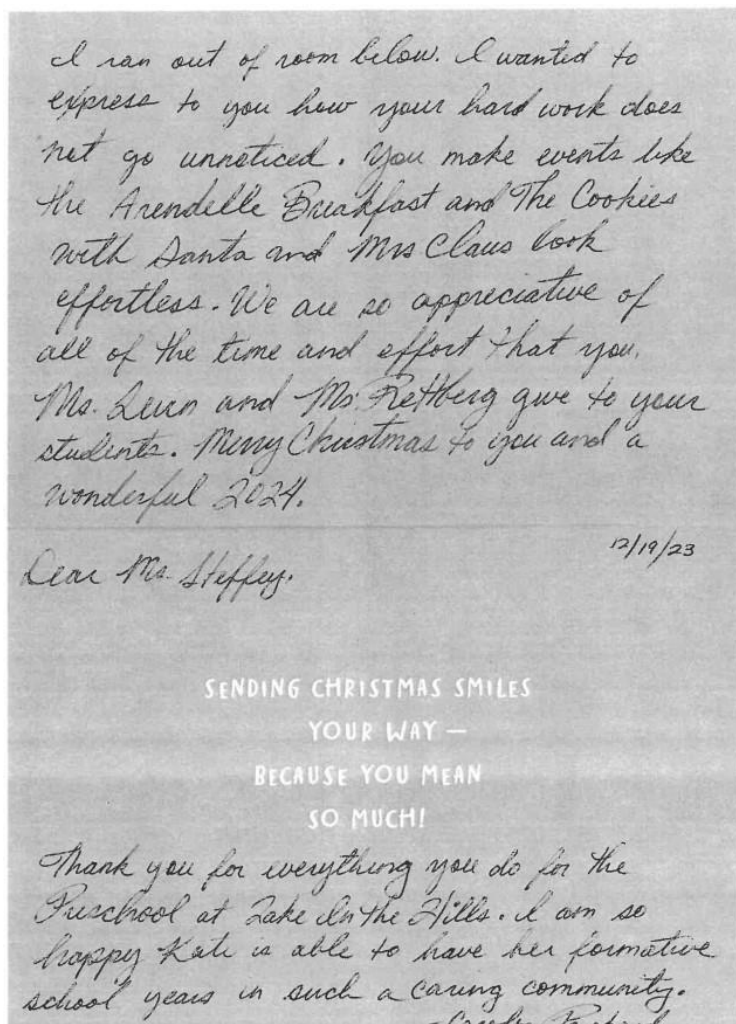 I ran out of room below. I wanted to
express to you how your hard work does
not go unnoticed. You make events like
the Arendelle Breakfast and The Cookies
with Santa and Mrs Claus look
effortless. We are so appreciative of
all of the time and effort that you,
Ms. and Ms. Rettberg give to your
students. Merry Christmas to you and a
wonderful 2024.
12/19/23
Dear Ms. Steffey,
SENDING CHRISTMAS SMILES
YOUR WAY —
BECAUSE YOU MEAN
SO MUCH!
Thank you for everything you do for the
Preschool at Lake In the Hills. I am so
happy Kate is able to have her formative
school years in such a caring community.